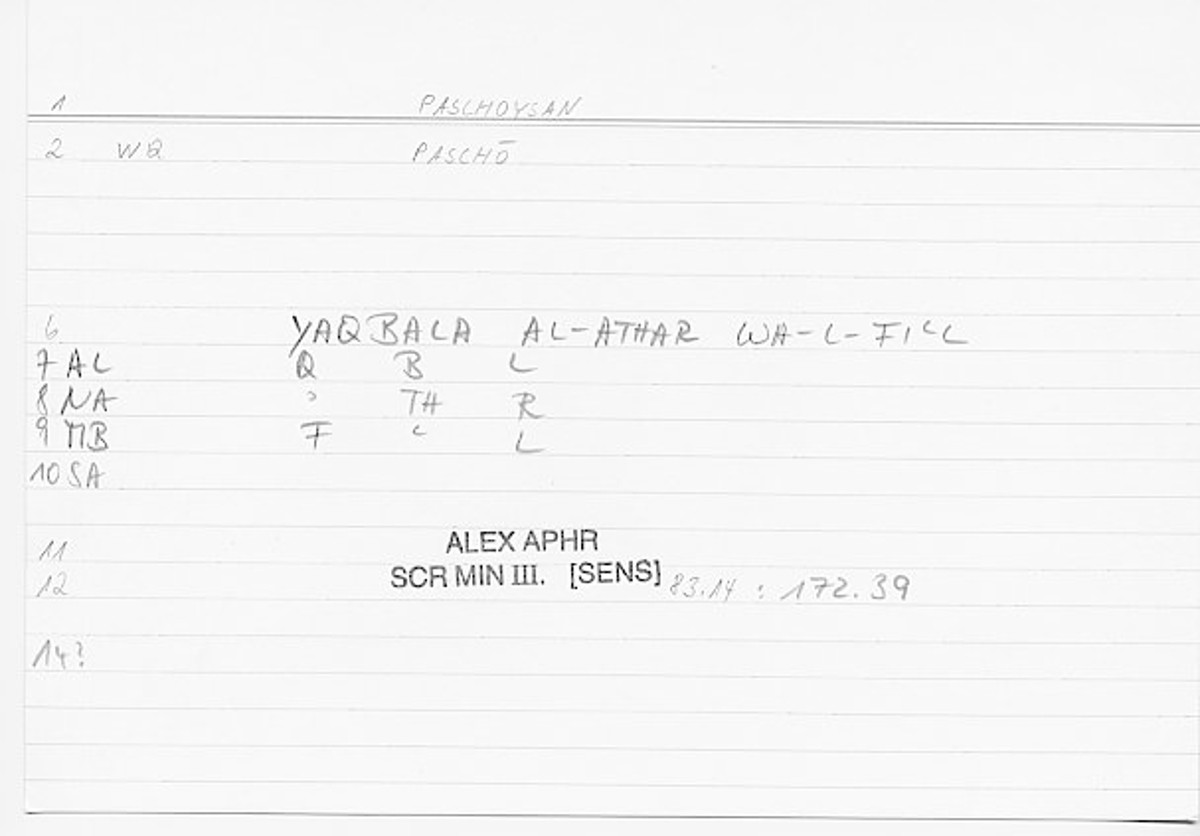 1 PASCHOYSAN
2 WQ PASCHŌ
6 YAQBALA AL-ATHAR WA-L-FIʿL
7 AL Q B L
8 NA ʾ TH R
9 MB F ʿ L
10 SA
11 ALEX APHR
12 SCR MIN III. [SENS] 83.14 : 172.39
14?